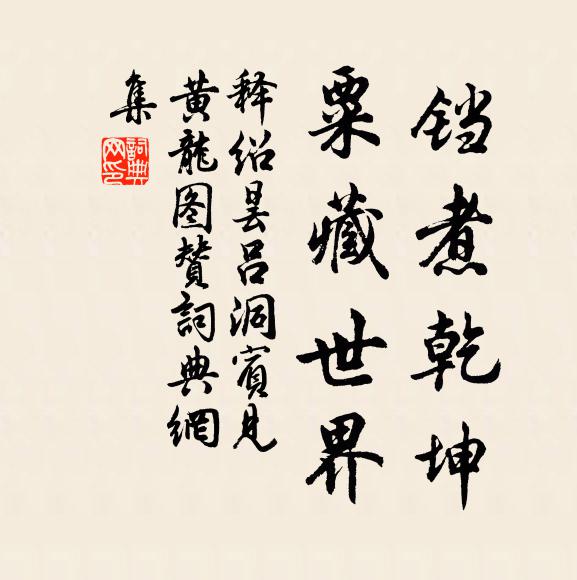 铛煮乾坤
粟藏世界
释绍昙吕洞宾见
黄龙图赞词典網
集
詞典
网印